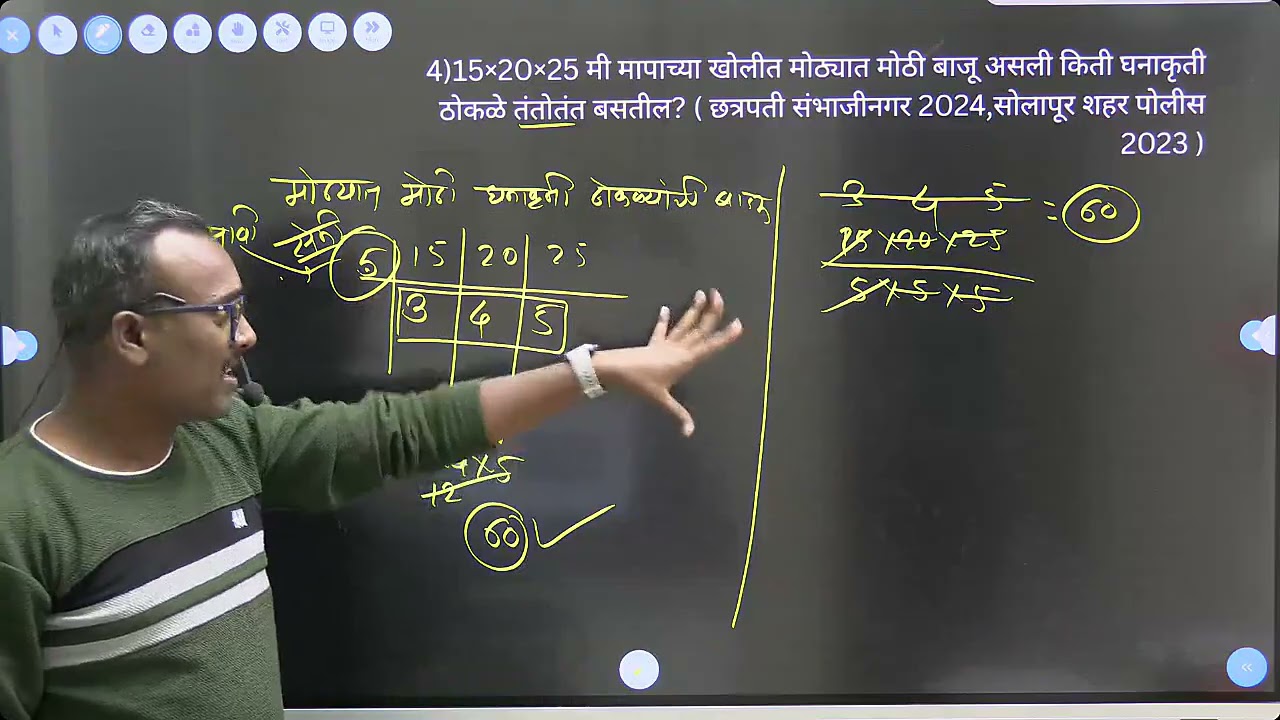 4)15×20×25 मी मापाच्या खोलीत मोठ्यात मोठी बाजू असली किती घनाकृती
ठोकळे तंतोतंत बसतील? ( छत्रपती संभाजीनगर 2024,सोलापूर शहर पोलीस
2023 )
मोठ्यात मोठी घनाकृती ठोकळ्यांची बाजू
5 15 20 25
3 4 5
4×5
12
60
3 4 5
15×20×25 = 60
5×5×5